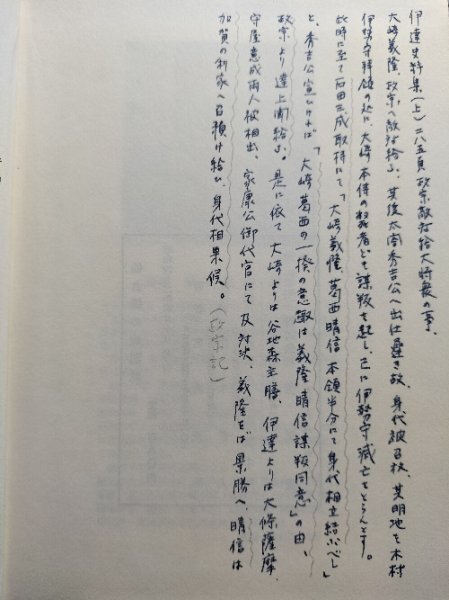 伊達史料集(上)二八五頁政宗敵対給大将衆の事、
大崎義隆、政宗へ敵対給ふ、其後太閤秀吉公へ出仕遅き故、身代被召放、其明地を木村
伊勢守拝領の処に、大崎本侍の牢者ども謀叛を起し、已に伊勢守滅亡をとらんとす。
此時に至て石田三成取持にて「大崎義隆葛西晴信本領半分にて身代相立給ふべし」
と、秀吉公宣ひければ「大崎葛西の一揆の意趣は義隆晴信謀叛同意」の由、
政宗より達上聞給ふ。是に依て大崎よりは谷地森主膳、伊達よりは大條薩摩、
守屋意成両人被相出、家康公御代官にて及対決、義隆をば景勝へ、晴信は
加賀の利家へ召預け給ひ、身代相果候。(政宗記)